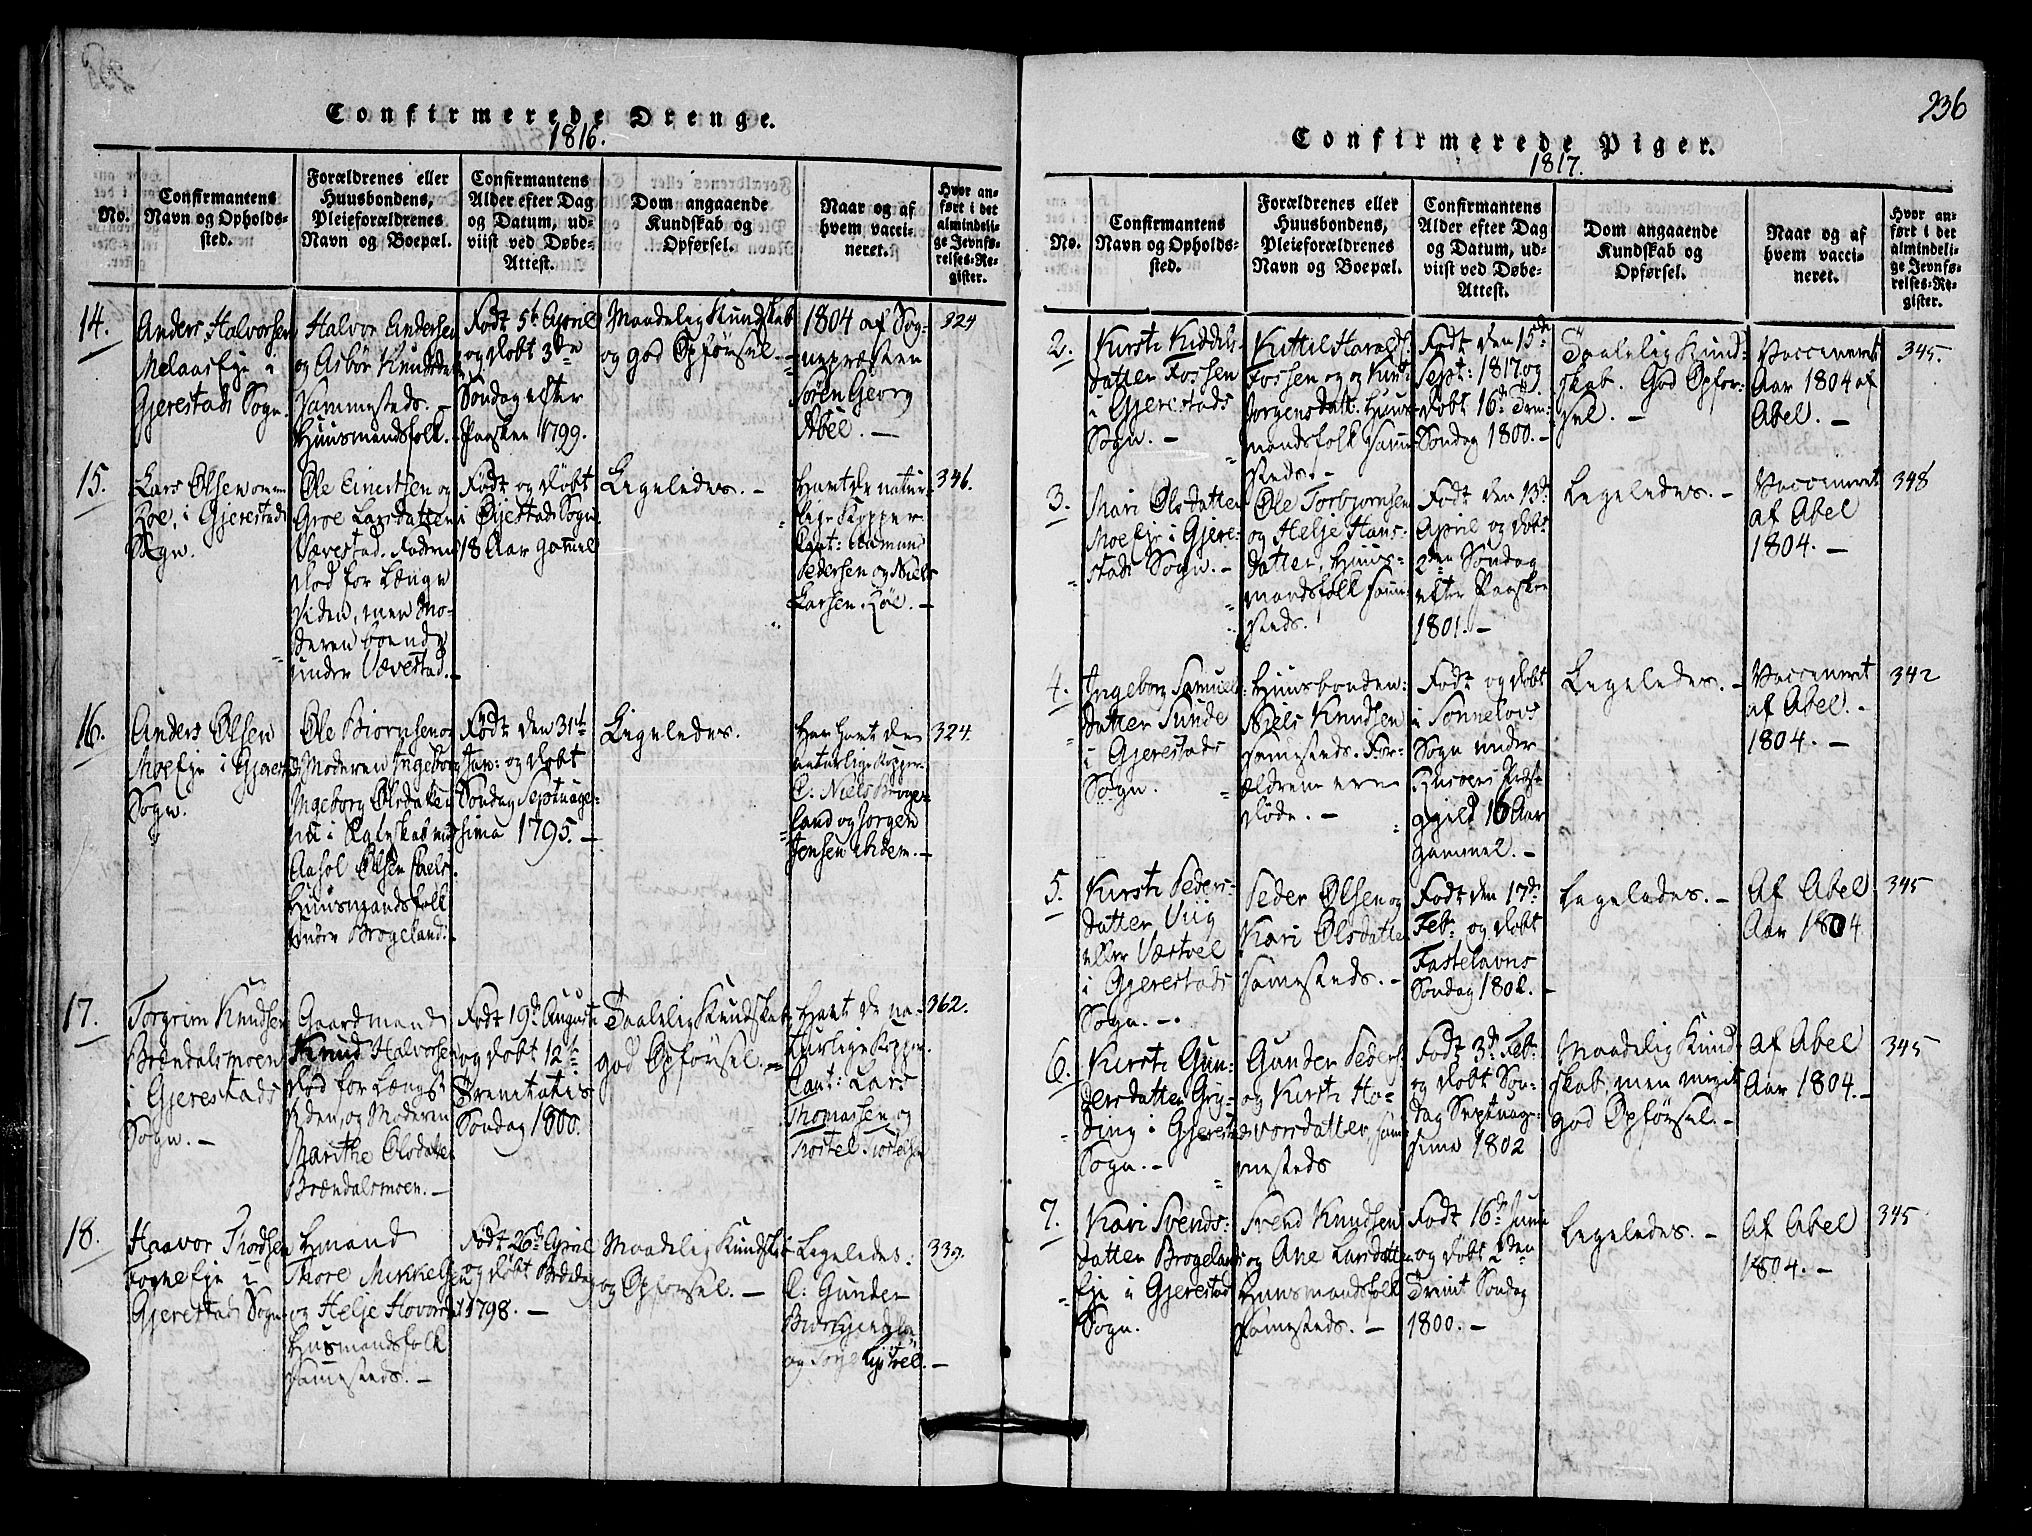 Confirmerede Drenge.
1816.
No.
Confirmantens
Navn og Opholds-
sted.
Forældrenes eller
Huusbondens,
Pleieforældrenes
Navn og Boepæl.
Confirmantens
Alder efter Dag
og Datum, ud-
viist ved Døbe-
Attest.
Dom angaaende
Kundskab og
Opførsel.
Naar og af
hvem vacci-
neret.
Hvor an-
ført i det
almindeli-
ge Jevnfø-
relses-Re-
gister.
14.
Anders Halvorsen
Melaas Eje i
Gjerestads Sogn.
Halvor Andersen
og Asbør Knudsdat
sammesteds. -
Huusmandsfolk. -
Født 5t April
og døbt 3de
Søndag efter
Paasken 1799.
Maadelig Kundskab
og god Opførsel. -
1804 af Sog-
nepræsten
Søren Georg
Abel. -
324
15.
Lars Olsen
i Gjerestads
Sogn.
Ole Einertsen og
Groe Larsdatter
Vævestad. Faderen
død for længe
siden, men Mo-
deren boende
under Vævestad. -
Født og døbt
i Øijestads Sogn
18 Aar gammel
Ligeledes. -
Havt de natur-
lige Kopper.
Cavt: Aamund
Pedersen og Niels
Larsen. -
346.
16.
Anders Olsen
Moe Eje i Gjerest
Sogn.
Ole Biørnsen og
Moderen Ingeborg
Ingeborg Olsdatter
Huusmandsfolk
under Brøgeland.
Født den 31t
Jan: og døbt
Søndag Septuage-
sima 1795. -
Ligeledes.
Har havt de
naturlige Kopper.
C: Niels Brøge-
land og Jørgen
Jensen ibidem. -
324.
17.
Torgrim Knudsen
Brændalsmoen
i Gjerestads
Sogn. -
Gaardmand
Knud Halvorsen
død for længst
siden, og Moderen
Marithe Olsdatter
Brændalsmoen. -
Født 19d August
og døbt 12te
Trinitatis
Søndag 1800.
Taalelig Kundskab
god Opførsel. -
Havt de na-
turlige Kopper.
Cavt: Lars
Thomassen og
362.
18.
Haavor Thordsen
Eje i
Gjerestads Sogn
Hmand
Thore Mikkelsen
og Helje Hovors
Husmandsfolk
sammesteds. -
Født 26d April
og døbt Bededag
1798. -
Maadelig Kundskab
og Opførsel. -
Ligeledes:
C: Gunder
339.
236
Confirmerede Piger.
1817.
No.
Confirmantens
Navn og Opholds-
sted.
Forældrenes eller
Huusbondens,
Pleieforældrenes
Navn og Boepæl.
Confirmantens
Alder efter Dag
og Datum, ud-
viist ved Døbe-
Attest.
Dom angaaende
Kundskab og
Opførsel.
Naar og af
hvem vacci-
neret.
Hvor an-
ført i det
almindeli-
ge Jevnfø-
relses-Re-
gister.
2.
Kirsti Kiddels-
datter Fossen
i Gjerestads
Sogn. -
Kittil Haralds:
Fossen og
Jørgensdatt. Huus-
mandsfolk samme-
steds. -
Født den 15de
Sept: 1817 og
døbt 16d Trin:
Søndag 1800. -
Taalelig Kund-
skab. God Opfør-
sel. -
Vaccineret
Aar 1804 af
Abel. -
345.
3.
Mari Olsdatter
Moe Eje i Gjere-
stads Sogn. -
Ole Torbjørnsen
og Helje Hans-
datter, Huus-
mandsfolk samme-
steds.
Født den 13de
April og døbt
2den Søndag
efter Paaske
1801. -
Ligeledes. -
Vaccineret
af Abel
1804. -
348
4.
Ingeborg Samuels-
datter Sunde
i Gjerestads
Sogn.
Huusbonden:
Niels Knudsen
sammesteds. For-
ældrene ere
døde. -
Født og døbt
i Sønneløvs
Sogn under
Præste-
gjeld 16 Aar
gammel. -
Ligeledes. -
Vaccineret
af Abel. -
1804. -
342
5.
Kirsti Peders-
datter Viig
eller Vestvel
i Gjerestads
Sogn. -
Peder Olsen og
Kari Olsdatter
sammesteds. -
Født den 17de
Feb: og døbt
Fastelavns
Søndag 1802. -
Ligeledes. -
Af Abel
Aar 1804
345
6.
Kirsti Gun-
dersdatter Gry-
ding i Gjerestads
Sogn. -
Gunder Peders:
og Kirsti Ha-
vorsdatter, sam-
mesteds
Født 3d Feb:
og døbt Søn-
dag Septuage-
sima 1802
Maadelig Kund-
skab, men meget
god Opførsel. -
Af Abel
Aar 1804. -
345
7.
Kari Svends-
datter Brøgelands
Eje i Gjerestad
Sogn.
Svend Knudsen
og Ane Larsdatter
Huusmandsfolk
sammesteds. -
Født 16d Juni
og døbt 2den
Trinit Søndag
1800. -
Ligeledes. -
Af Abel
1804. -
345